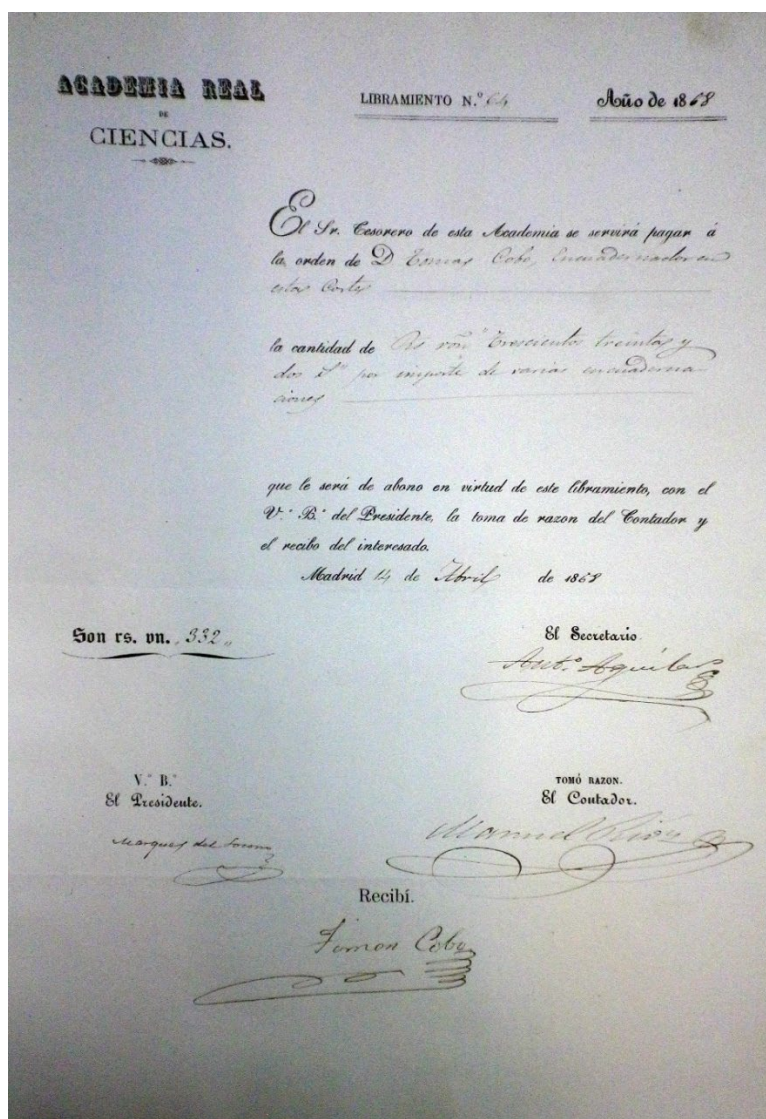 ACADEMIA REAL
DE
CIENCIAS.
LIBRAMIENTO N.º 64
Año de 1868
El Sr. Tesorero de esta Academia se servirá pagar á
la orden de D Tomas Cobo, Encuadernador en
esta Corte
la cantidad de Rs von Trescientos treinta y
dos rs por importe de varias encuaderna-
ciones
que le será de abono en virtud de este libramiento, con el
V.º B.º del Presidente, la toma de razon del Contador y
el recibo del interesado.
Madrid 14 de Abril de 1868
Son rs. vn. „332„
El Secretario.
Ant.º Aguilar
V.º B.º
El Presidente.
Marques del Socorro
TOMÓ RAZON.
El Contador.
Manuel
Recibí.
Cobo